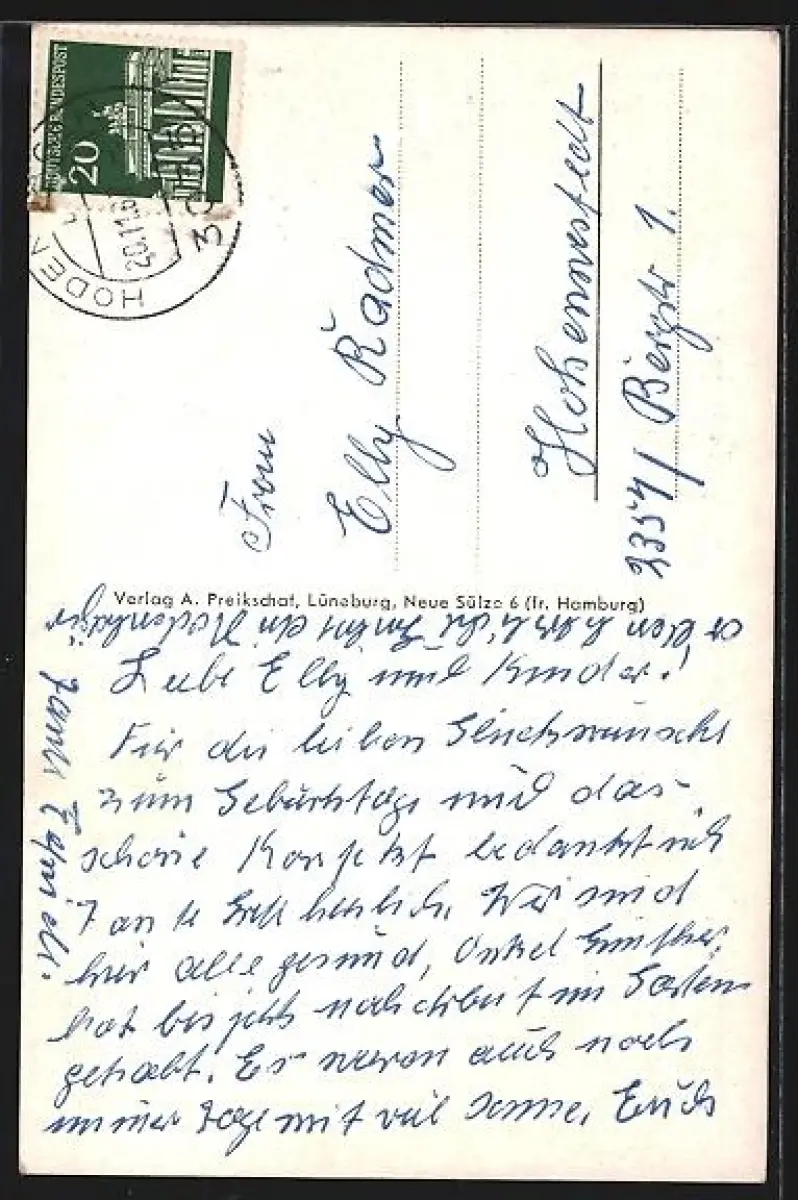 DEUTSCHE BUNDESPOST
20
HODEN
20.11.6
Frau
Elly Radmer
Hohenwestedt
2354 / Bergstr 1.
Verlag A. Preikschat, Lüneburg, Neue Sülze 6 (fr. Hamburg)
Liebe Elly und Kinder!
Für die lieben Glückwünsche
zum Geburtstage und das
schöne Konfekt bedankt sich
Tante herzlich. Wir sind
hier alle gesund, Onkel Günther
hat bis jetzt noch Arbeit im Garten
gehabt. Es waren auch noch
immer Tage mit viel Sonne. Euch